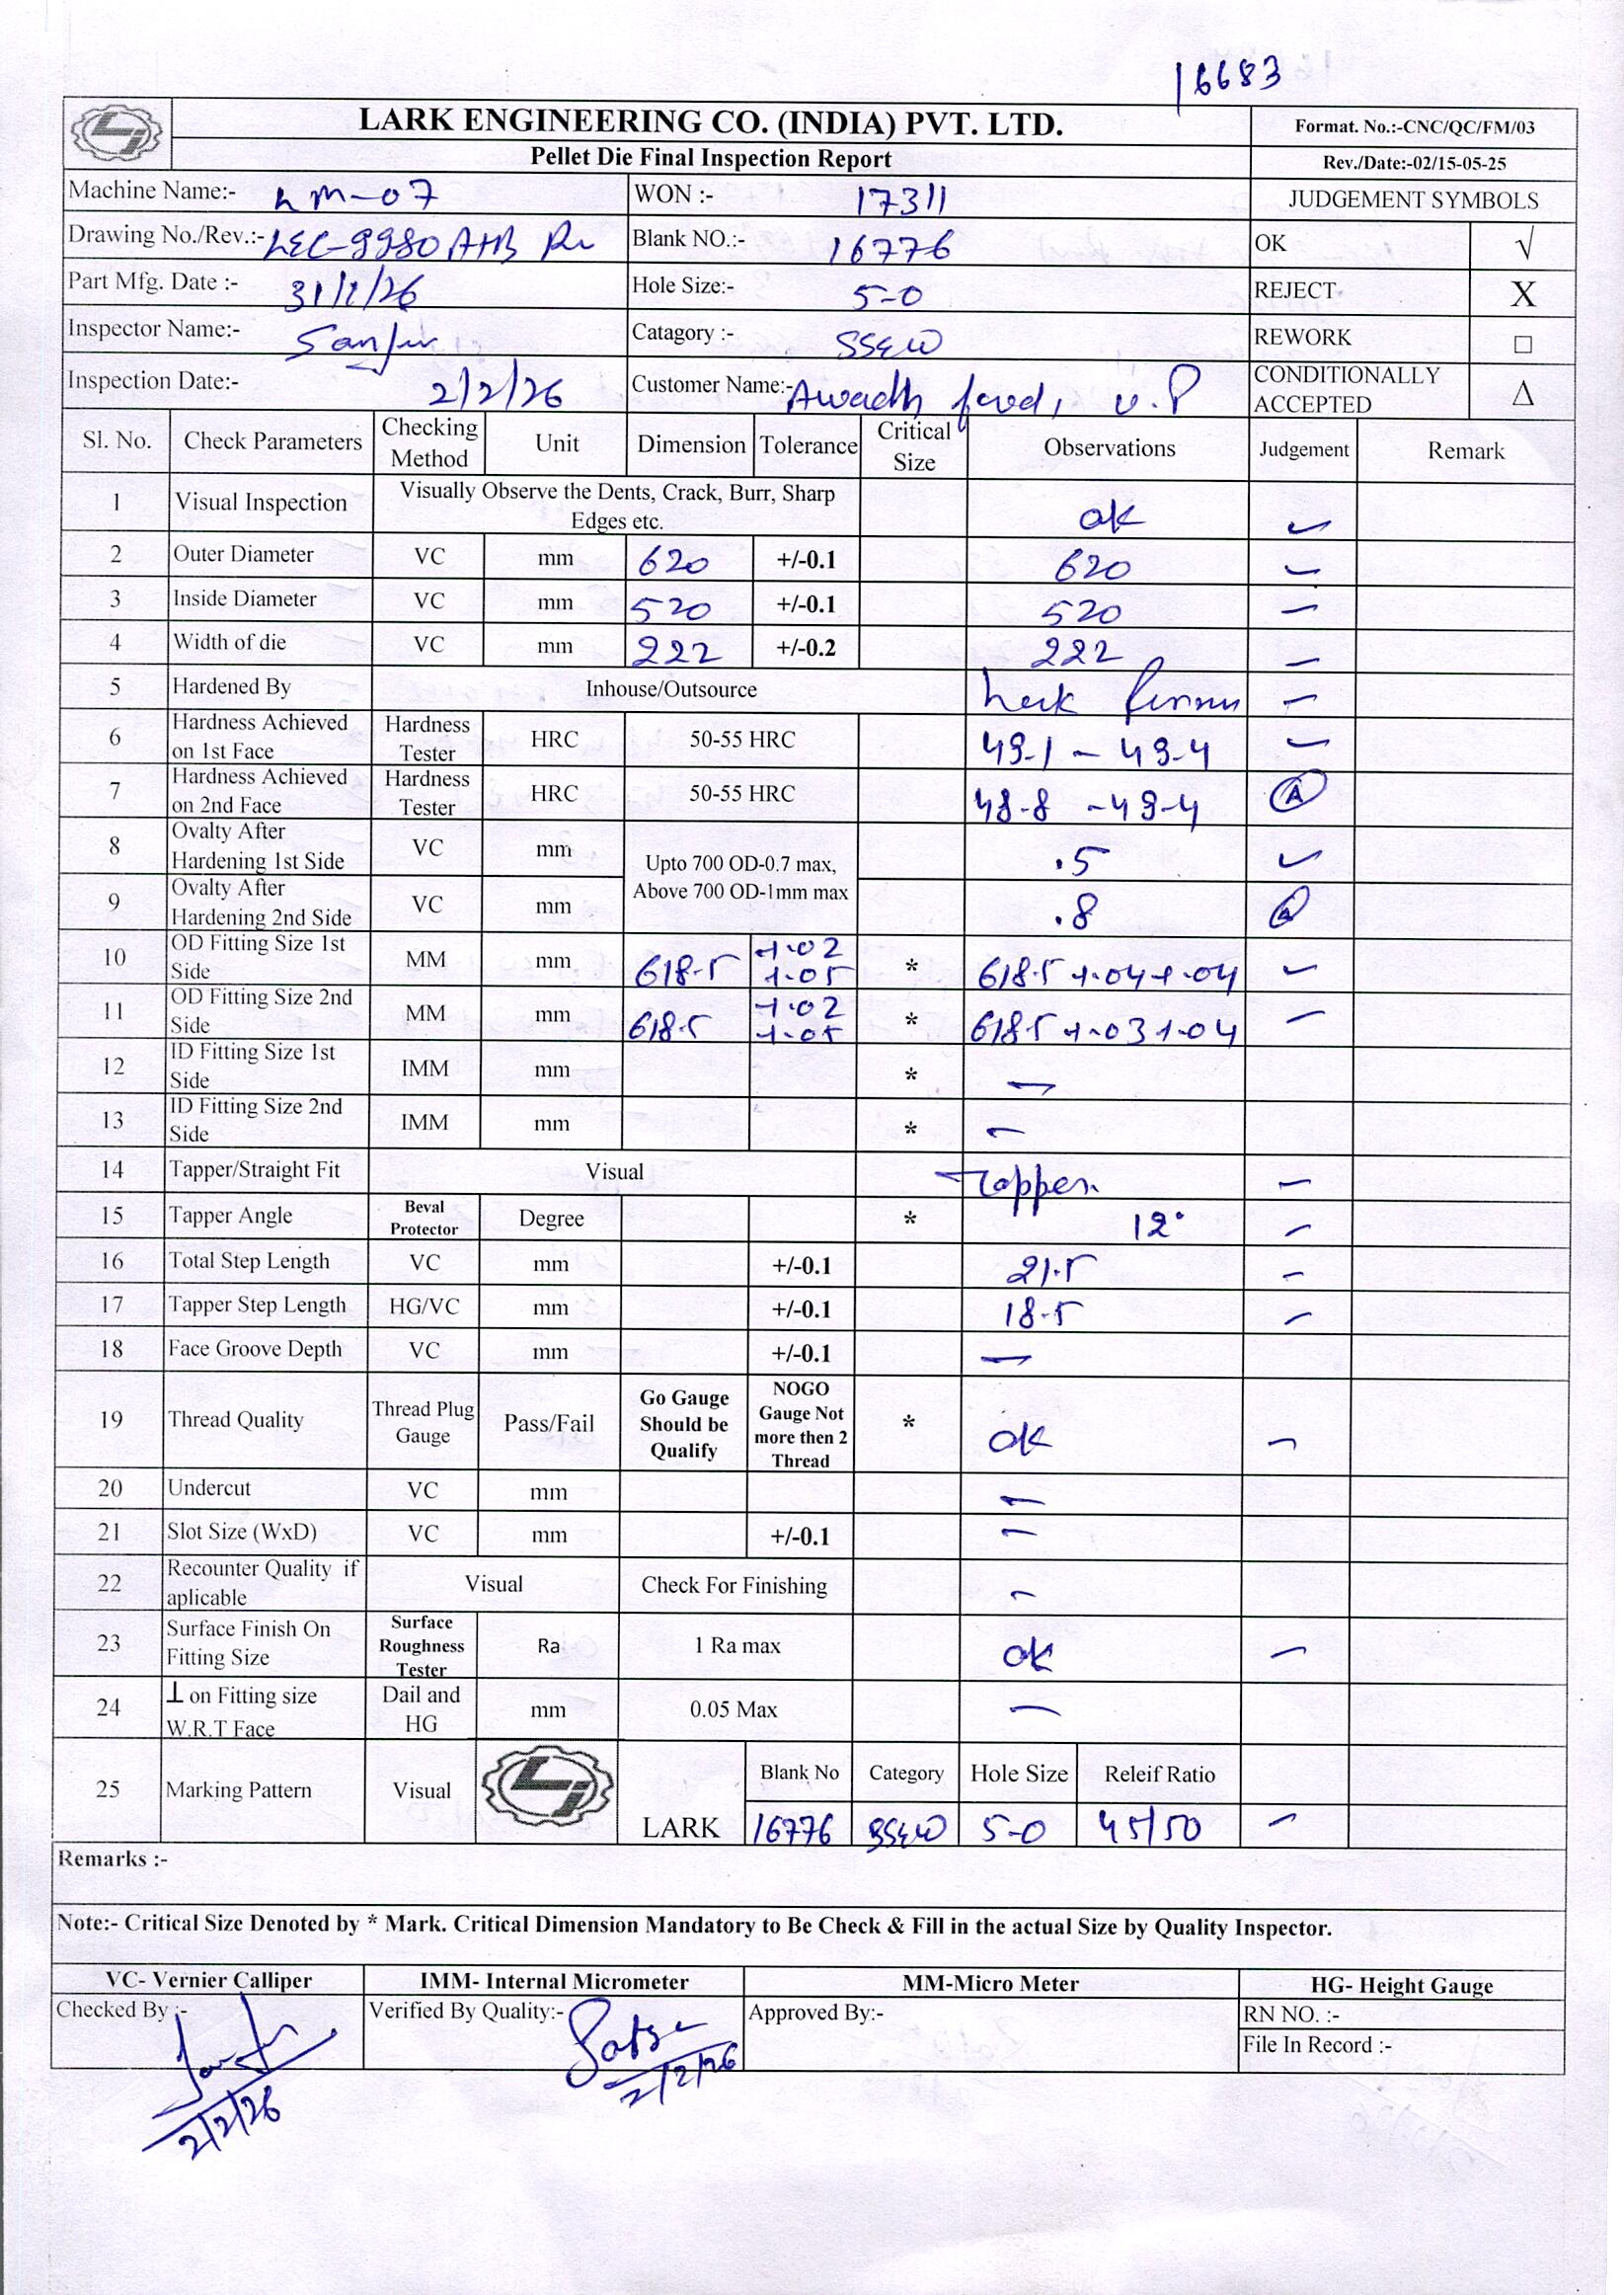 16683
LARK ENGINEERING CO. (INDIA) PVT. LTD.
Format. No.:-CNC/QC/FM/03
Pellet Die Final Inspection Report
Rev./Date:-02/15-05-25
Machine Name:- LM-07 WON :- 17311 JUDGEMENT SYMBOLS
Drawing No./Rev.:- LEC-9980 AHB Blank NO.:- 16776 OK √
Part Mfg. Date :- 31/1/26 Hole Size:- 5-0 REJECT X
Inspector Name:- Catagory :- SSEW REWORK □
Inspection Date:- 2/2/26 Customer Name:- Awadh feed, U.P CONDITIONALLY ACCEPTED Δ
Sl. No. Check Parameters Checking Method Unit Dimension Tolerance Critical Size Observations Judgement Remark
1 Visual Inspection Visually Observe the Dents, Crack, Burr, Sharp Edges etc. ok ✓
2 Outer Diameter VC mm 620 +/-0.1 620 ✓
3 Inside Diameter VC mm 520 +/-0.1 520 ✓
4 Width of die VC mm 222 +/-0.2 222 ✓
5 Hardened By Inhouse/Outsource ✓
6 Hardness Achieved on 1st Face Hardness Tester HRC 50-55 HRC 49-1 - 49-4 ✓
7 Hardness Achieved on 2nd Face Hardness Tester HRC 50-55 HRC 48-8 - 49-4 A
8 Ovalty After Hardening 1st Side VC mm Upto 700 OD-0.7 max, Above 700 OD-1mm max .5 ✓
9 Ovalty After Hardening 2nd Side VC mm .8
10 OD Fitting Size 1st Side MM mm 618.5 +.02 +.05 * 618.5 +.04 +.04 ✓
11 OD Fitting Size 2nd Side MM mm 618.5 +.02 +.05 * 618.5 +.03 +.04 ✓
12 ID Fitting Size 1st Side IMM mm * —
13 ID Fitting Size 2nd Side IMM mm * —
14 Tapper/Straight Fit Visual Tapper ✓
15 Tapper Angle Beval Protector Degree * 12° ✓
16 Total Step Length VC mm +/-0.1 21.5 ✓
17 Tapper Step Length HG/VC mm +/-0.1 18.5 ✓
18 Face Groove Depth VC mm +/-0.1 —
19 Thread Quality Thread Plug Gauge Pass/Fail Go Gauge Should be Qualify NOGO Gauge Not more then 2 Thread * ok ✓
20 Undercut VC mm —
21 Slot Size (WxD) VC mm +/-0.1 —
22 Recounter Quality if aplicable Visual Check For Finishing —
23 Surface Finish On Fitting Size Surface Roughness Tester Ra 1 Ra max ok ✓
24 ⊥ on Fitting size W.R.T Face Dail and HG mm 0.05 Max —
25 Marking Pattern Visual LARK Blank No Category Hole Size Releif Ratio
16776 SSEW 5-0 45/50 ✓
Remarks :-
Note:- Critical Size Denoted by * Mark. Critical Dimension Mandatory to Be Check & Fill in the actual Size by Quality Inspector.
VC- Vernier Calliper IMM- Internal Micrometer MM-Micro Meter HG- Height Gauge
Checked By :- Verified By Quality:- Approved By:- RN NO. :-
File In Record :-
2/2/26
2/2/26